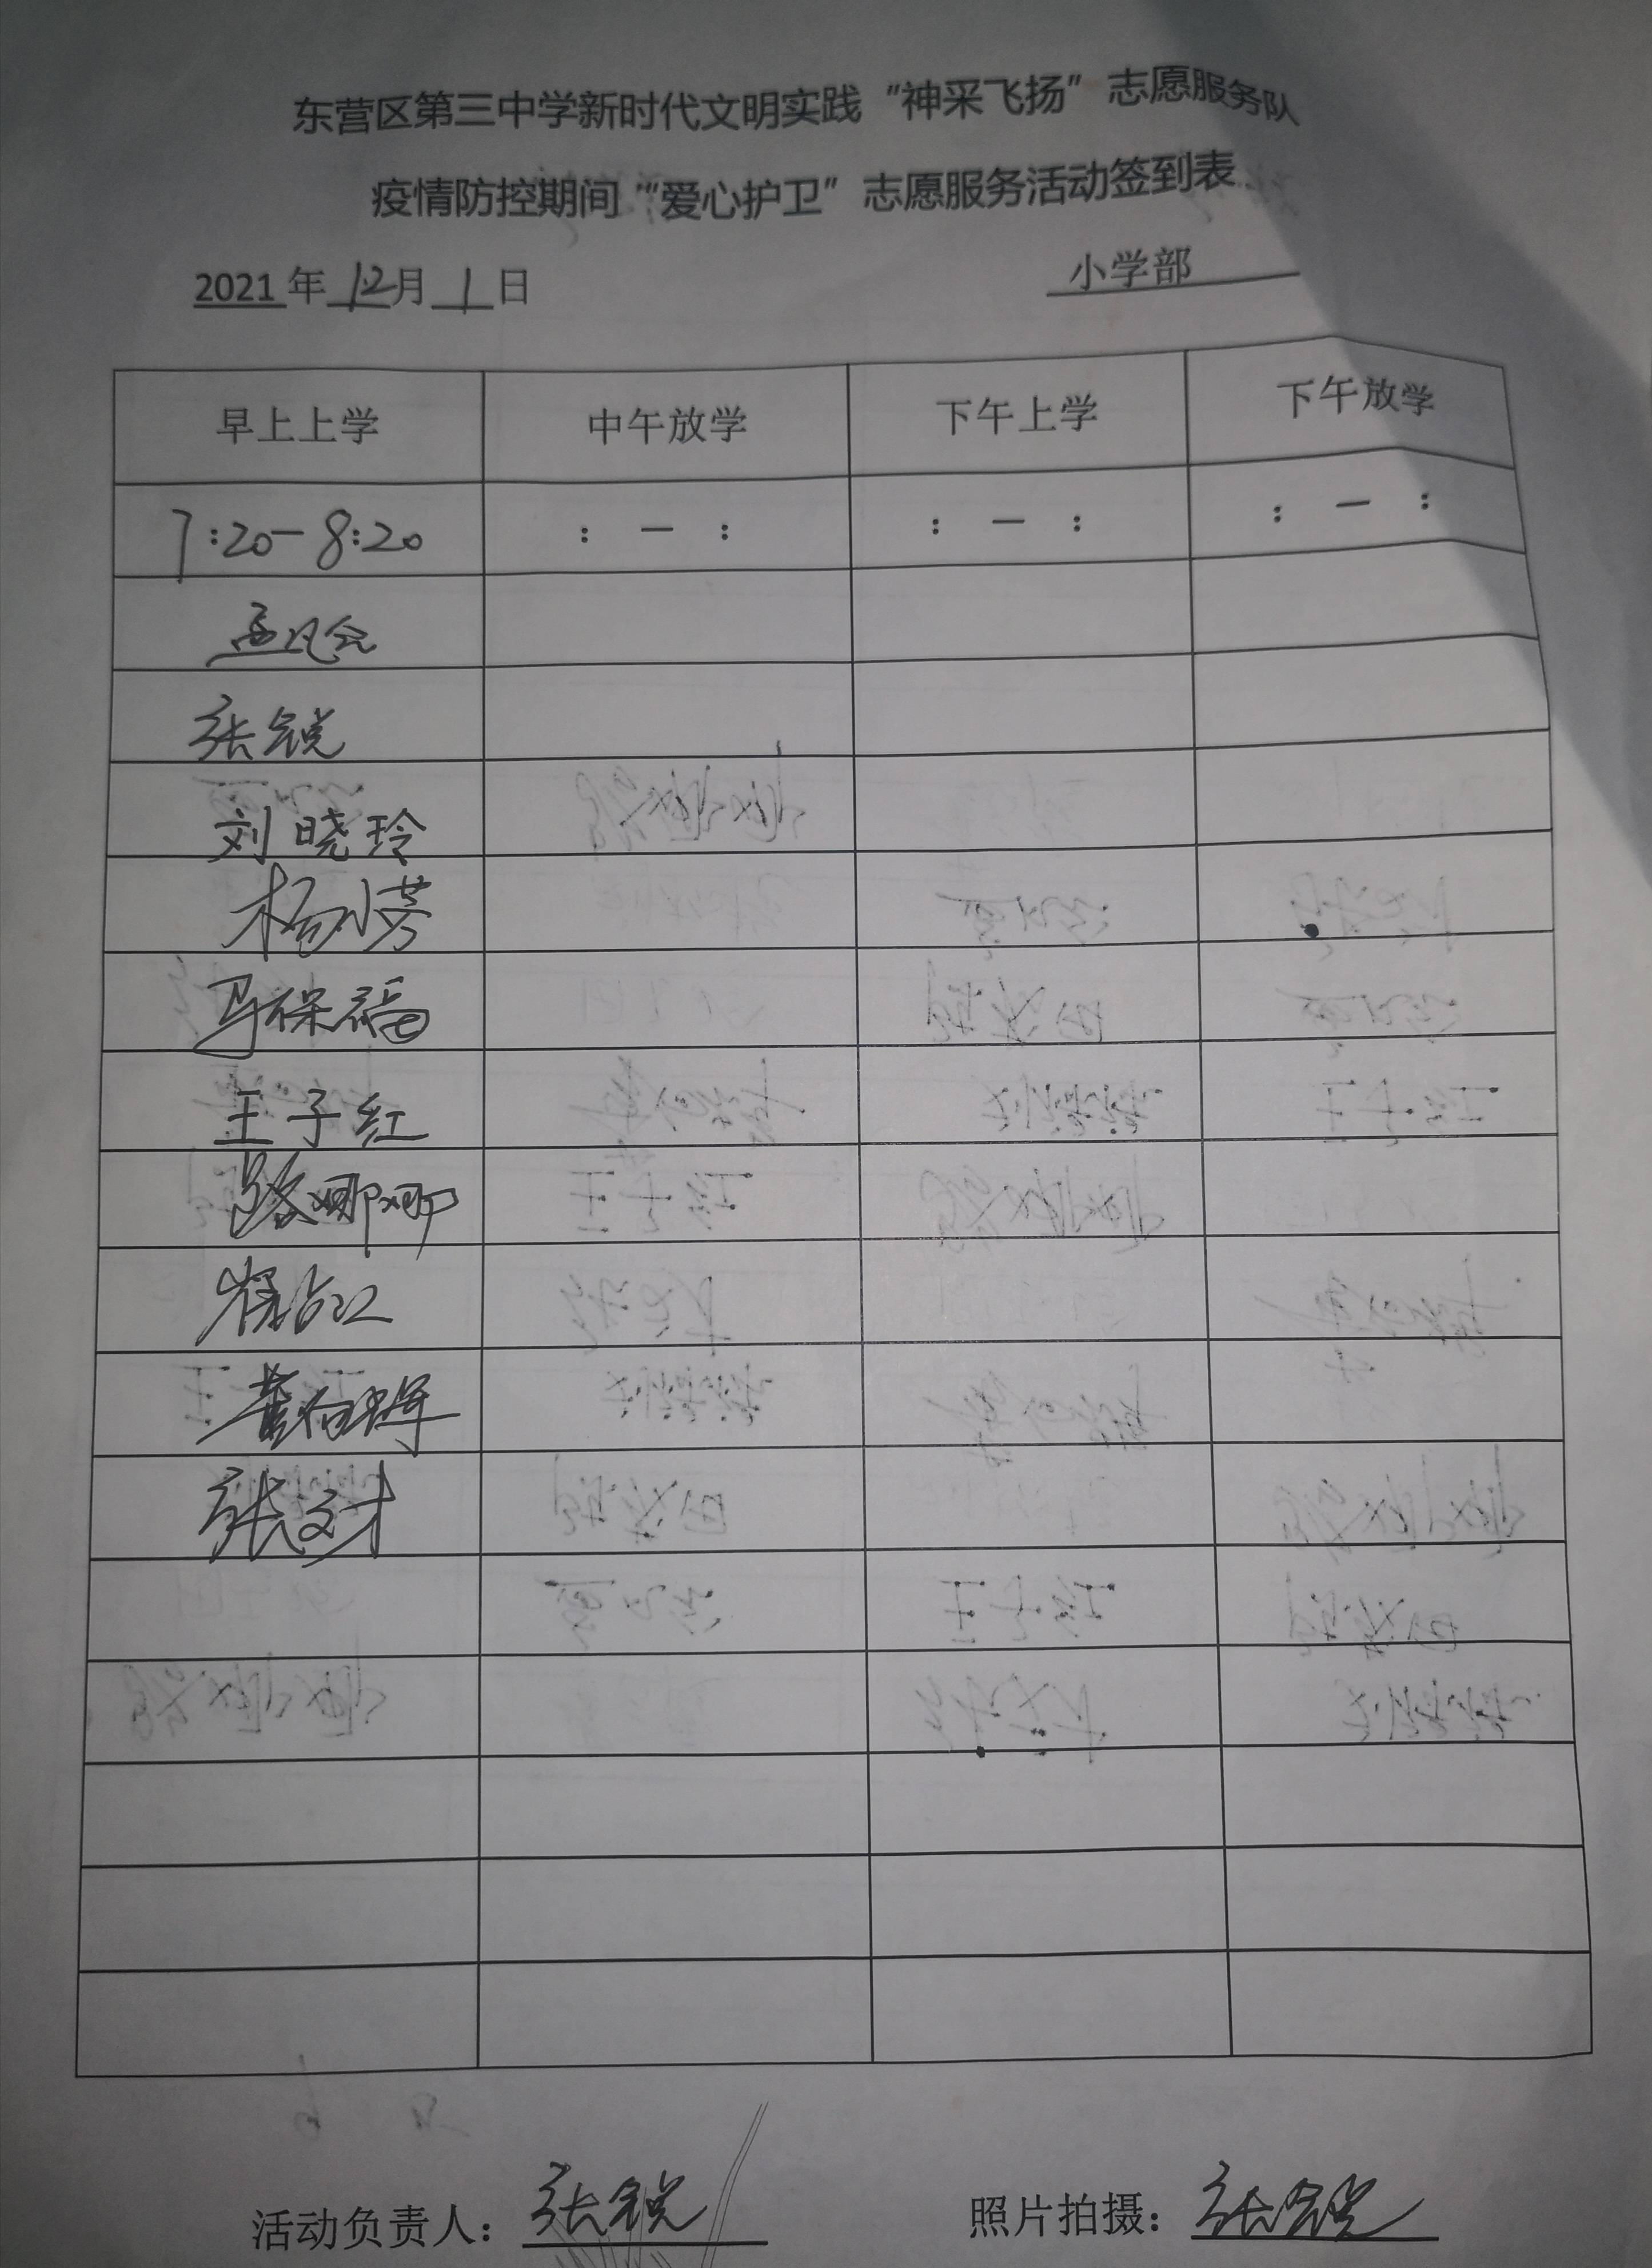 东营区第三中学新时代文明实践“神采飞扬”志愿服务队
疫情防控期间““爱心护卫”志愿服务活动签到表
2021年12月1日 小学部
早上上学 中午放学 下午上学 下午放学
7:20-8:20 : — : : — : : — :
张锐
刘晓玲
杨小芳
马保福
王子红
路娜娜
董向辉
张文才
活动负责人：张锐 照片拍摄：张锐